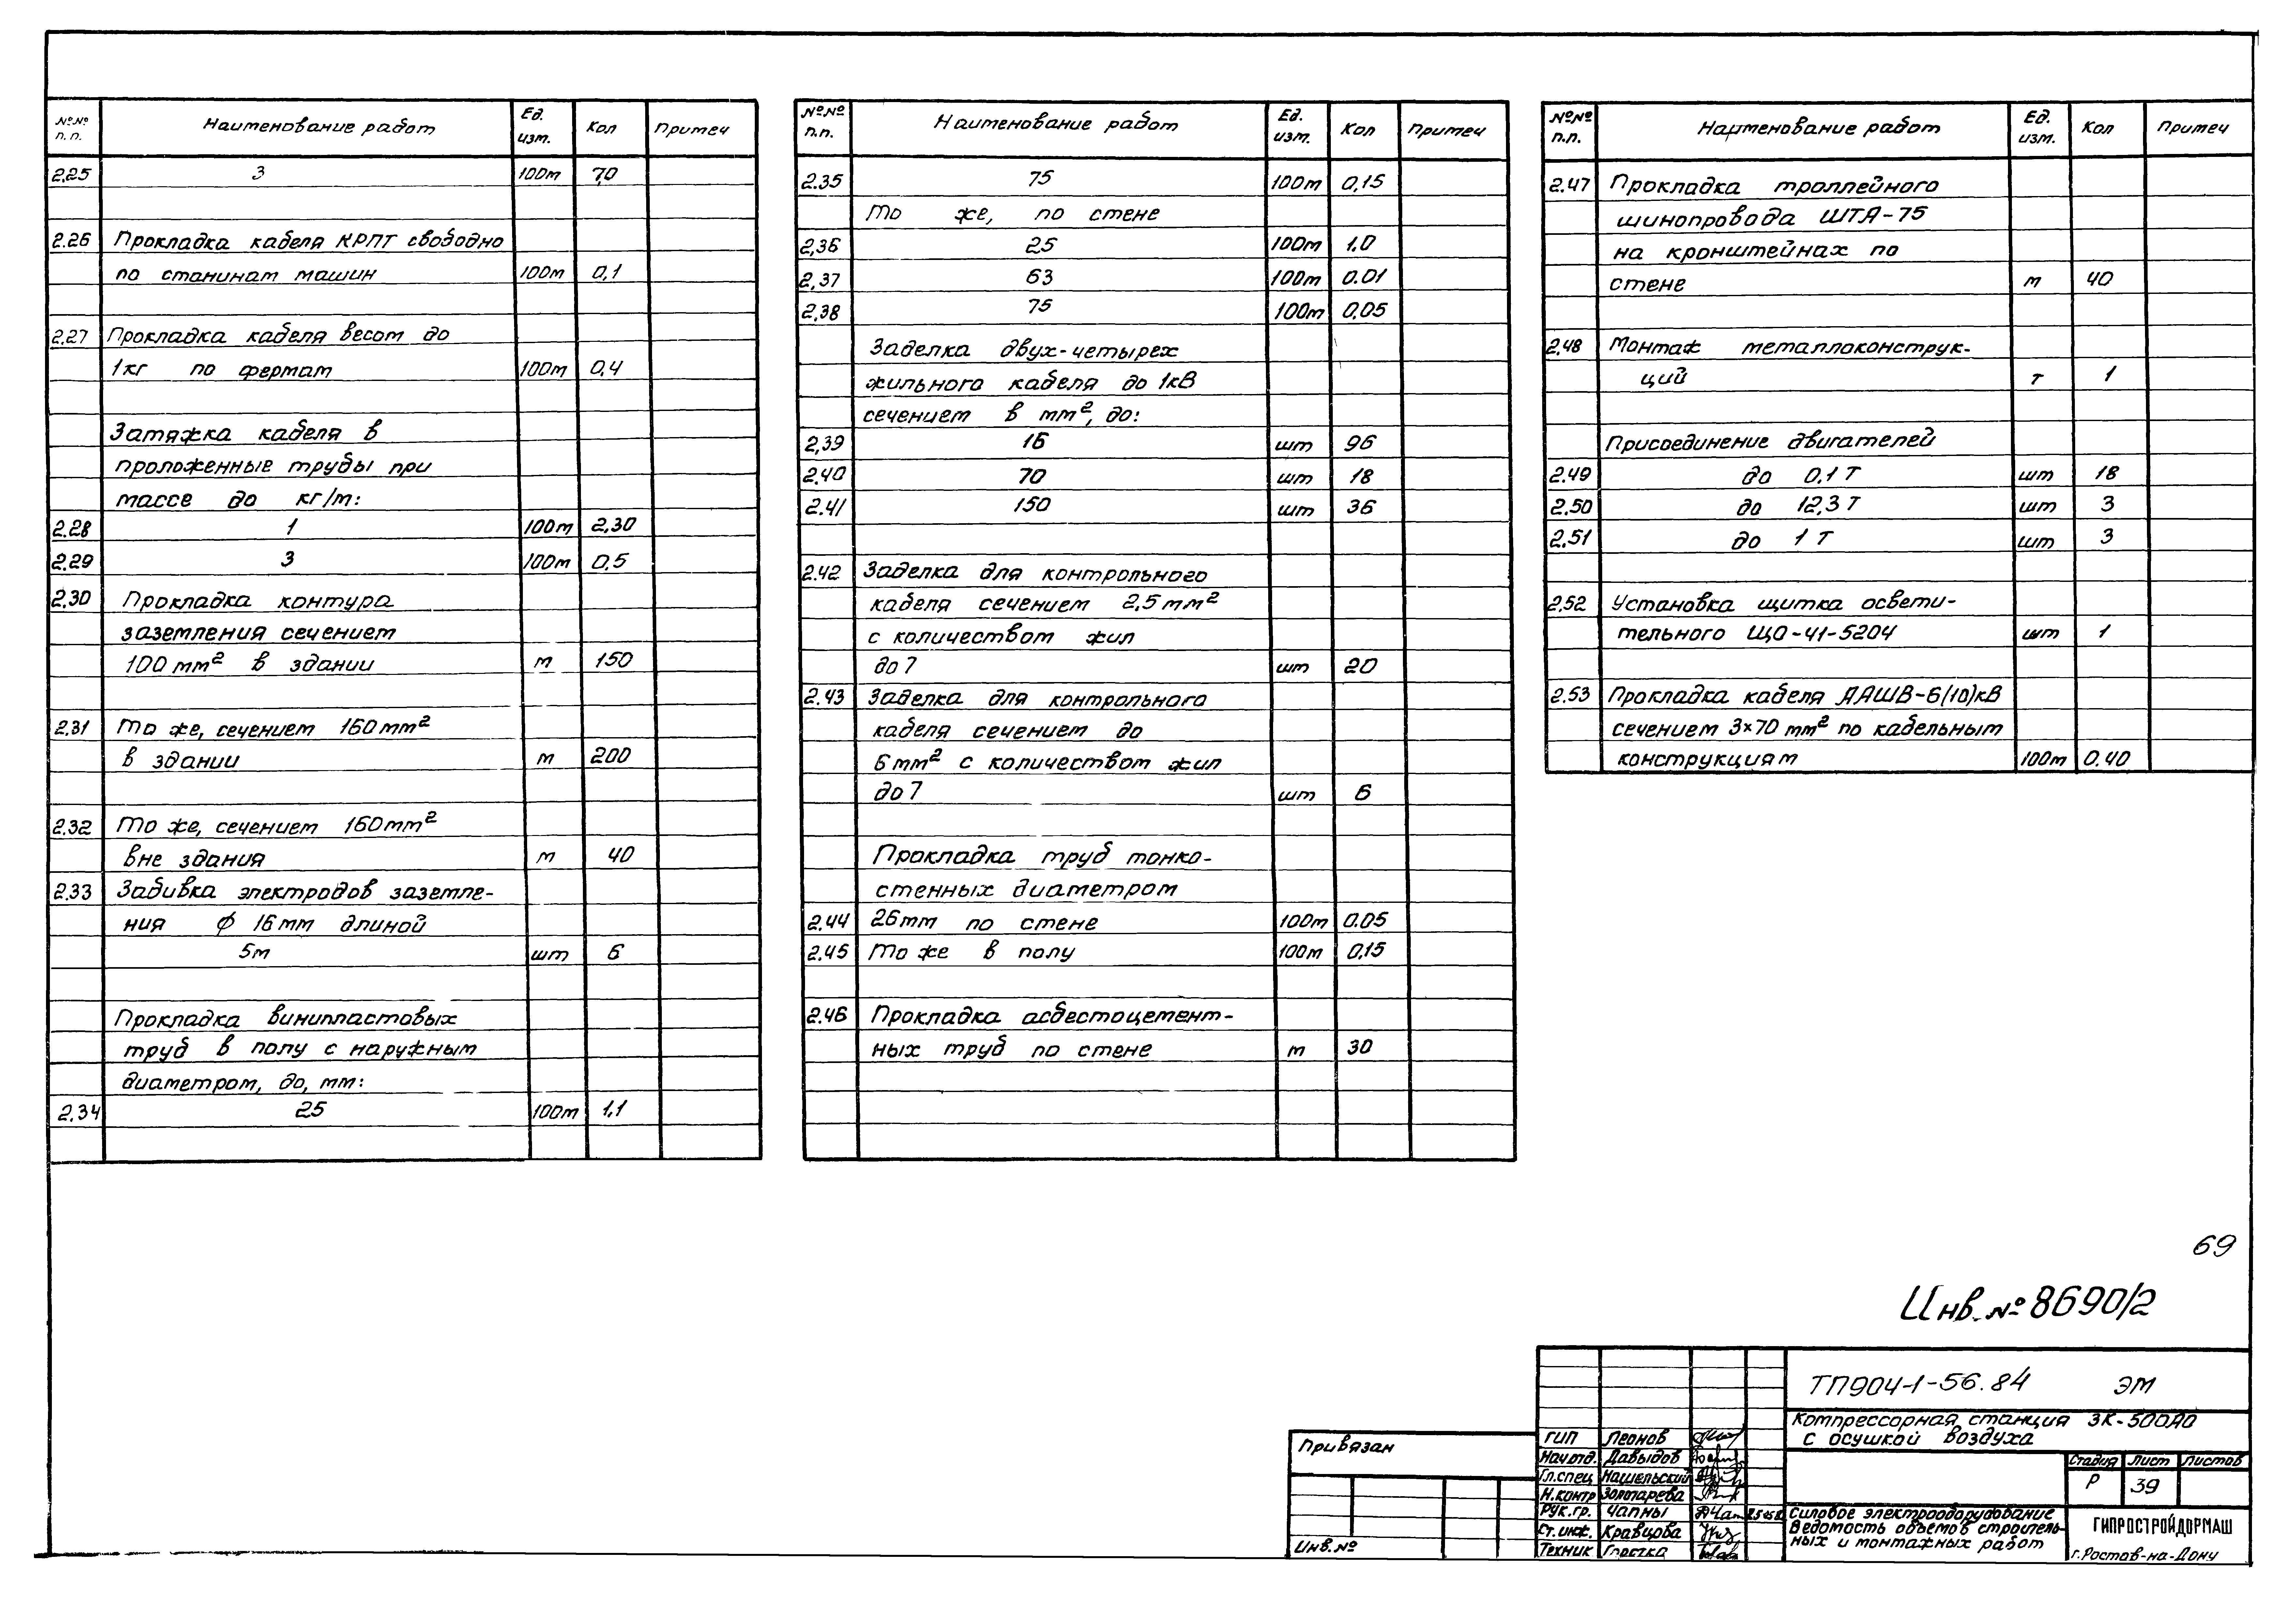 №№ п.п. Наименование работ Ед. изм. Кол Примеч
2.25 3 100м 7,0
2.26 Прокладка кабеля КРПТ свободно
по станинам машин 100м 0,1
2.27 Прокладка кабеля весом до
1кг по фермам 100м 0,4
Затяжка кабеля в
проложенные трубы при
массе до кг/м:
2.28 1 100м 2,30
2.29 3 100м 0,5
2.30 Прокладка контура
заземления сечением
100 мм² в здании м 150
2.31 То же, сечением 160 мм²
в здании м 200
2.32 То же, сечением 160 мм²
вне здания м 40
2.33 Забивка электродов заземле-
ния ф 16 мм длиной
5м шт 6
Прокладка винипластовых
труб в полу с наружным
диаметром, до, мм:
2.34 25 100м 1,1
№№ п.п. Наименование работ Ед. изм. Кол Примеч
2.35 75 100м 0,15
То же, по стене
2.36 25 100м 1.0
2.37 63 100м 0.01
2.38 75 100м 0.05
Заделка двух-четырех
жильного кабеля до 1кВ
сечением в мм², до:
2.39 16 шт 96
2.40 70 шт 18
2.41 150 шт 36
2.42 Заделка для контрольного
кабеля сечением 2,5 мм²
с количеством жил
до 7 шт 20
2.43 Заделка для контрольного
кабеля сечением до
6 мм² с количеством жил
до 7 шт 6
Прокладка труб тонко-
стенных диаметром
2.44 26мм по стене 100м 0.05
2.45 То же в полу 100м 0,15
2.46 Прокладка асбестоцемент-
ных труб по стене м 30
№№ п.п. Наименование работ Ед. изм. Кол Примеч
2.47 Прокладка троллейного
шинопровода ШТА-75
на кронштейнах по
стене м 40
2.48 Монтаж металлоконструк-
ций т 1
Присоединение двигателей
2.49 до 0,1 Т шт 18
2.50 до 12,3 Т шт 3
2.51 до 1 Т шт 3
2.52 Установка щитка освети-
тельного ЩО-41-5204 шт 1
2.53 Прокладка кабеля ААШВ-6(10)кВ
сечением 3×70 мм² по кабельным
конструкциям 100м 0.40
69
Инв. № 8690/2
ТП904-1-56.84 ЭМ
Компрессорная станция 3К-500АО
с осушкой воздуха
Привязан
Инв.№
ГИП Леонов
Нач.отд. Давыдов
Гл.спец Нашельский
Н.контр Золотарева
Рук.гр. Чапны
Ст.инж. Кравцова
Техник
Стадия Лист Листов
Р 39
Силовое электрооборудование
Ведомость объемов строитель-
ных и монтажных работ
ГИПРОСТРОЙДОРМАШ
г.Ростов-на-Дону